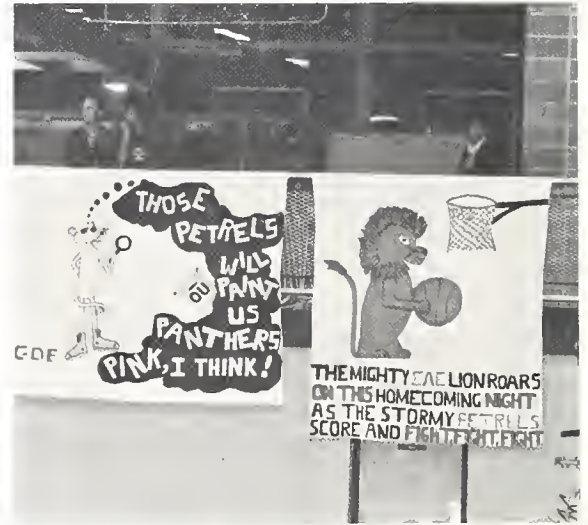 THOSE
PETRELS
WILL
PAINT
US
PANTHERS
PINK, I THINK!
OU
THE MIGHTY ΣAE LION ROARS
ON THIS HOMECOMING NIGHT
AS THE STORMY PETRELS
SCORE AND FIGHT, FIGHT, FIGHT